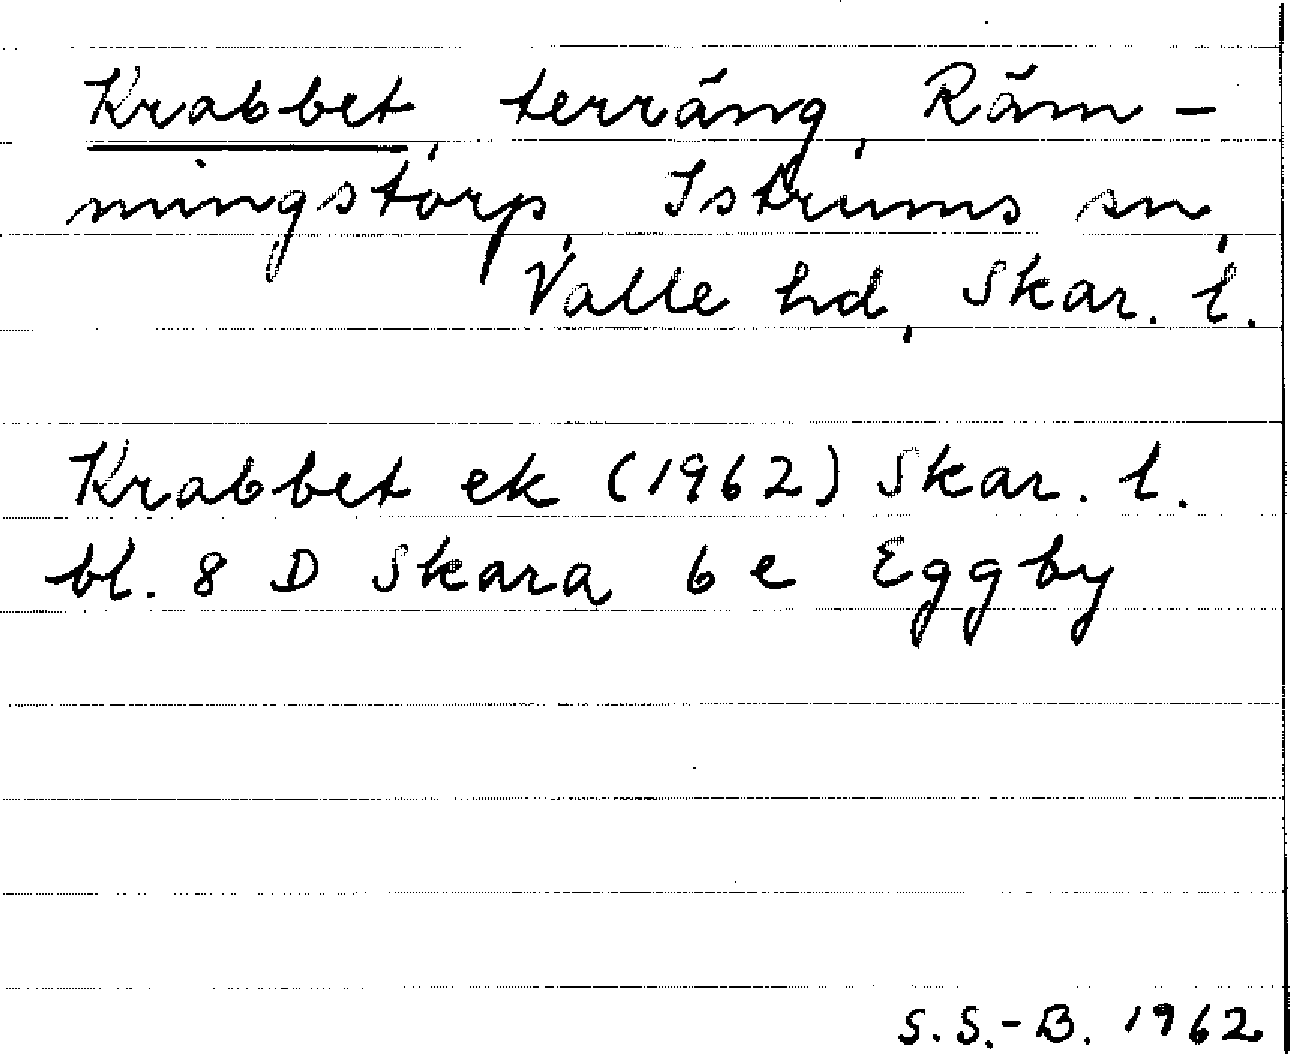 Krabbet, terräng, Räm-
mingstorp, Istrums sn,
Valle hd, Skar. l.
Krabbet ek (1962) Skar. l.
bl. 8 D Skara 6 e Eggby
S.S.-B. 1962